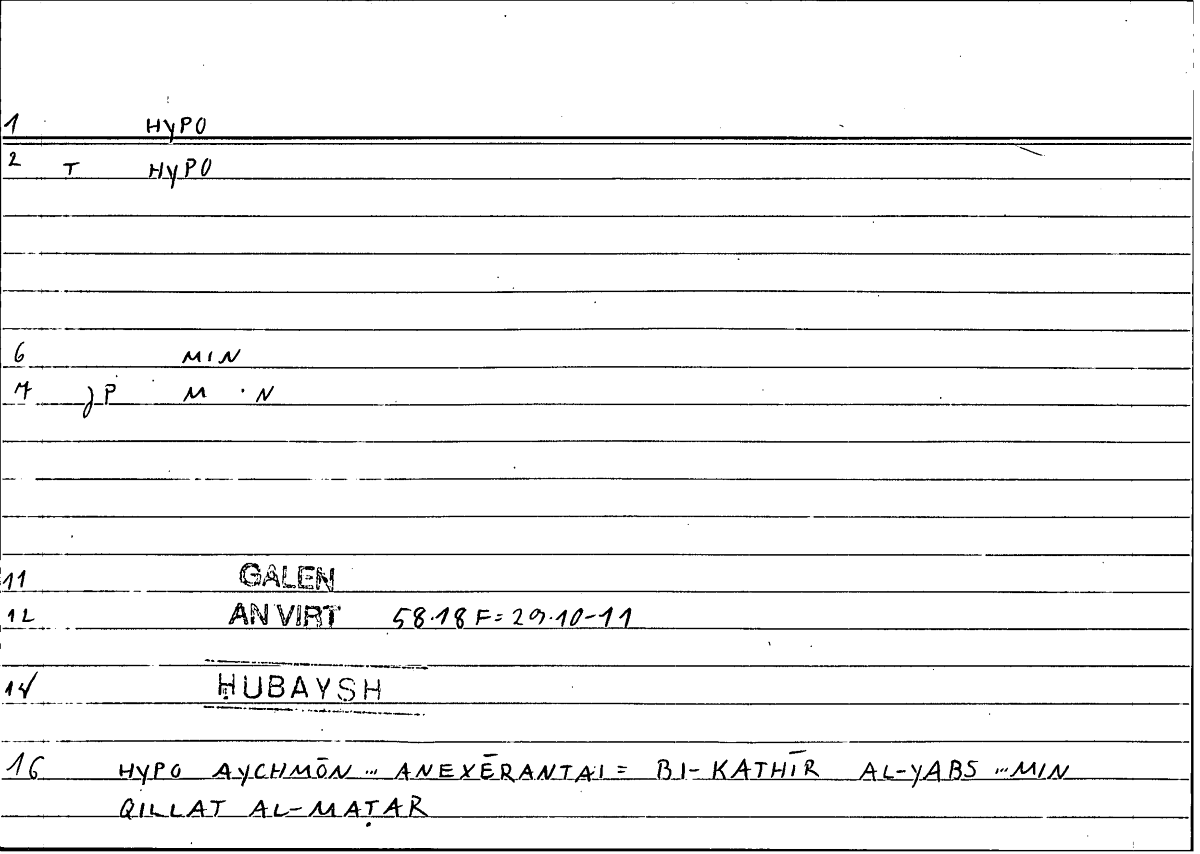 1 HYPO
2 T HYPO
6 MIN
7 JP M · N
11 GALEN
12 AN VIRT 58.18 F = 29.10-11
14 ḤUBAYSH
16 HYPO AYCHMŌN ... ANEXĒRANTAI = BI-KATHĪR AL-YABS ... MIN
QILLAT AL-MAṬAR